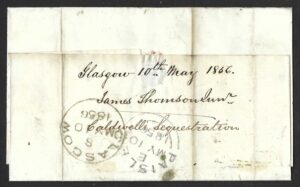 Glasgow 10th May 1856.
James Thomson Junr
Caldwells Sequestration
GLASGOW
1856
MY 10